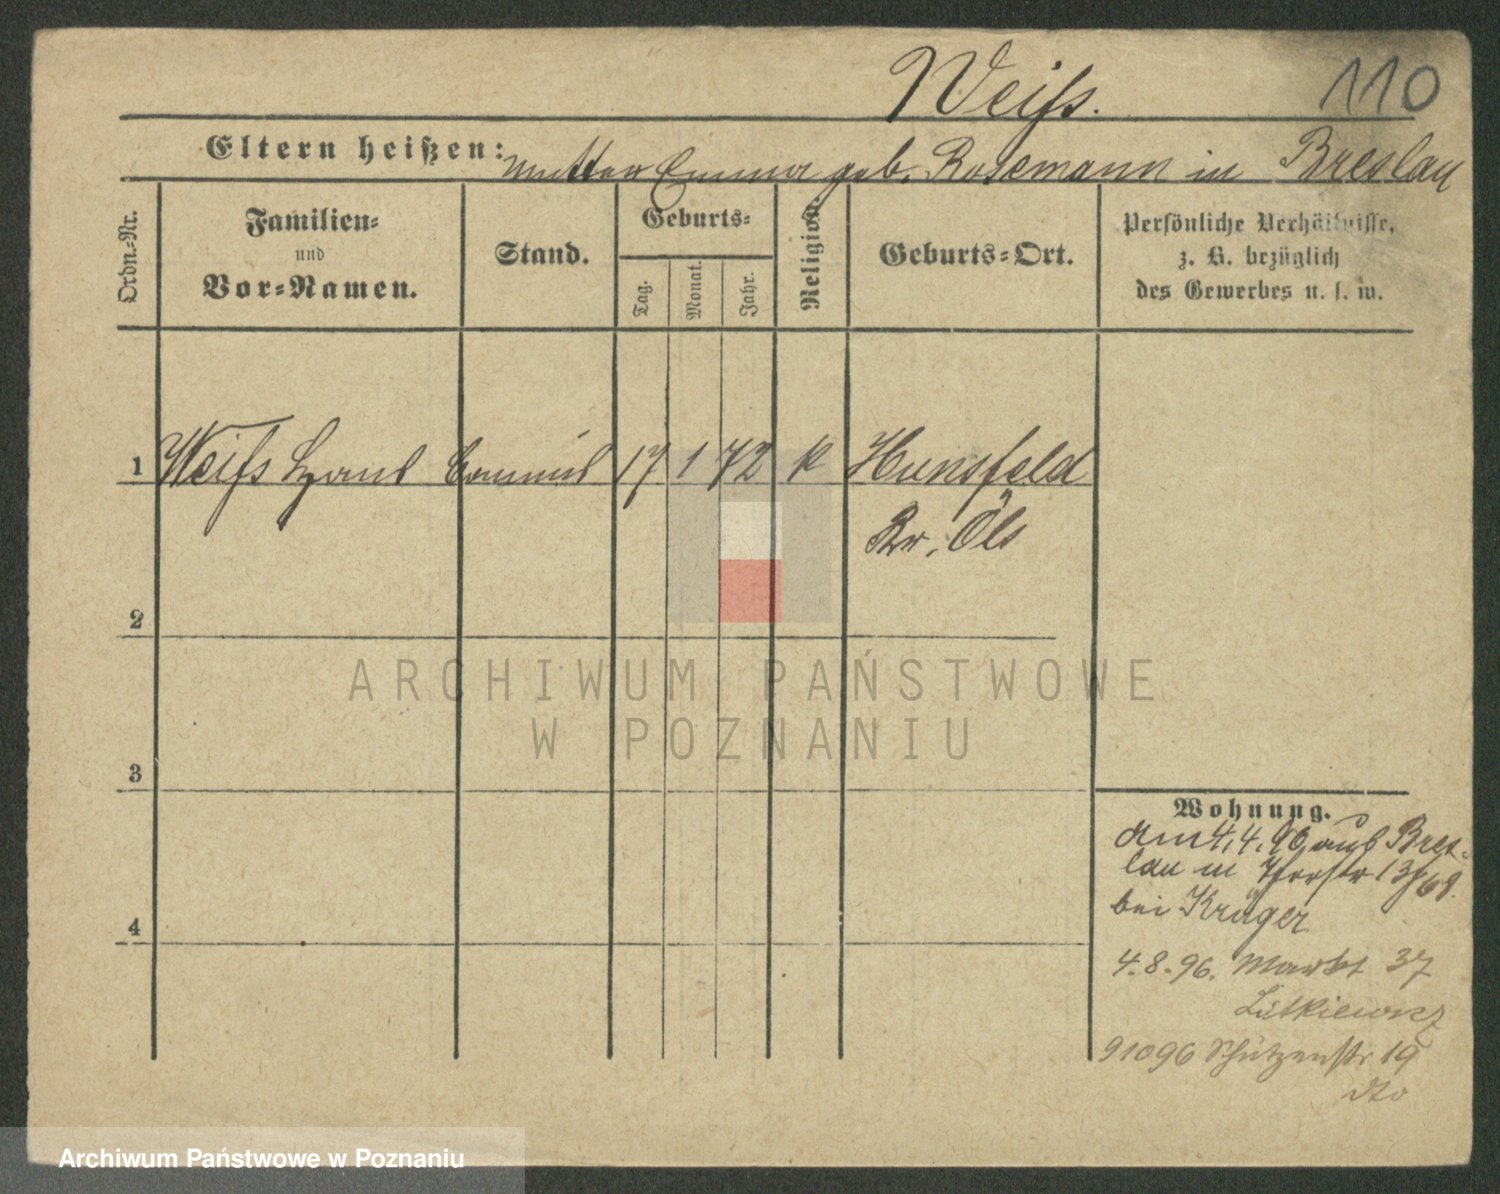 Weiſs. 110
Eltern heißen: Mutter Emma geb. Rosemann in Breslau
Ordn.-Nr.
Familien- und Vor-Namen.
Stand.
Geburts-
Tag.
Monat.
Jahr.
Religion.
Geburts-Ort.
Persönliche Verhältnisse,
z. B. bezüglich
des Gewerbes u. s. w.
1 Weiſs Hans Commis 17 1 72 k Hunsfeld
Kr. Öls
2
3
4
Wohnung.
Am 4.4.96 aus Bres-
lau in 13/68.
bei Krüger
4.8.96. Markt 37
91096 Schützenstr 19
dto
ARCHIWUM PAŃSTWOWE
W POZNANIU
Archiwum Państwowe w Poznaniu